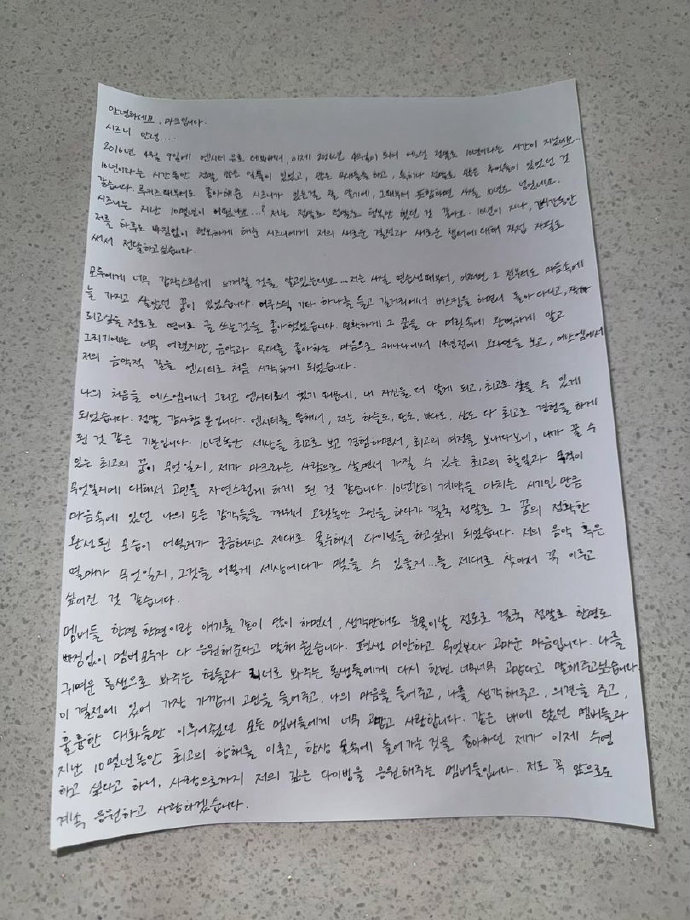 안녕하세요, 마크입니다.
시즈니 안녕....
2016년 4월 9일에 엔시티 유로 데뷔해서, 이제 2026년 4월이 되어 어느새 정말로 10년이라는 시간이 지났네요...
10년이라는 시간동안 정말, 많은 일들이 있었고, 많은 무대들을 하고, 특히나 정말로 많은 추억들이 있었던 것
같습니다. 루키즈때부터도 좋아해준 시즈니가 있는걸 잘 알기에, 그때부터 포함하면 사실 10년도 넘었네요.
시즈니는 지난 10몇년이 어땠나요...? 저는 정말로 정말로 행복만 했던 것 같아요. 10년이 지나, 긴시간동안
저를 하루도 빠짐없이 행복하게 해준 시즈니에게 저의 새로운 결정과 새로운 챕터에 대해 직접 자필로
써서 전달하고 싶습니다.
모두에게 너무 갑작스럽게 느껴질 것을 알고있는데요...저는 사실 연습생때부터, 어쩌면 그 전부터도 마음속에
늘 가지고 살았던 꿈이 있었습니다. 어쿠스틱 기타 하나를 들고 길거리에서 버스킹을 하면서 돌아다니고, 작가
되고싶을 정도로 영어로 글 쓰는것을 좋아했었습니다. 명확하게 그 꿈을 다 어린속에 완벽하게 알고
그리기에는 너무 어렸지만, 음악과 무대를 좋아하는 마음으로 캐나다에서 14년전에 오디션을 보고, 에스엠에서
저의 음악적 길을 엔시티로 처음 시작하게 되었습니다.
나의 처음을 에스엠에서 그리고 엔시티로서 했기 때문에, 내 자신을 더 알게 되고, 최고로 잘할 수 있게
되었습니다. 정말 감사할 뿐입니다. 엔시티를 통해서, 저는 하늘도, 땅도, 바다도, 산도 다 최고로 경험을 하게
된 것 같은 기분입니다. 10년동안 세상을 최고로 보고 경험하면서, 최고의 여정을 보내다보니, 내가 꿀 수
있는 최고의 꿈이 무엇일지, 제가 마크라는 사람으로 살면서 가질 수 있는 최고의 할일과 목적이
무엇일지에 대해서 고민을 자연스럽게 하게 된 것 같습니다. 10년간의 계약을 마치는 시기인 만큼
마음속에 있던 나의 모든 감각들을 깨워서 오랫동안 고민을 하다가 결국 정말로 그 꿈의 정확한
완성된 모습이 어떨지가 궁금해지고 제대로 몰두해서 다이빙을 하고싶게 되었습니다. 저의 음악 혹은
열매가 무엇일지, 그것을 어떻게 세상에다가 맺을 수 있을지...를 제대로 찾아서 꼭 이루고
싶어진 것 같습니다.
멤버들 한명 한명이랑 얘기를 같이 많이 하면서, 생각만해도 눈물이날 정도로 결국 정말로 한명도
빠짐없이 멤버 모두가 다 응원해준다고 말해 줬습니다. 평생 미안하고 무엇보다 고마운 마음입니다. 나를
귀여운 동생으로 봐주는 형들과 리더로 봐주는 동생들에게 다시 한번 너무너무 고맙다고 말해주고싶습니다.
이 결정에 있어 가장 가깝게 고민을 들어주고, 나의 마음을 들어주고, 나를 생각해주고, 의견을 주고,
훌륭한 대화들만 이루어줬던 모든 멤버들에게 너무 고맙고 사랑합니다. 같은 배에 탔던 멤버들과
지난 10몇년동안 최고의 항해를 이루고, 항상 물속에 들어가는 것을 좋아하던 제가 이제 수영
하고 싶다고 하니, 사랑으로까지 저의 깊은 다이빙을 응원해주는 멤버들입니다. 저도 꼭 앞으로도
계속 응원하고 사랑하겠습니다.